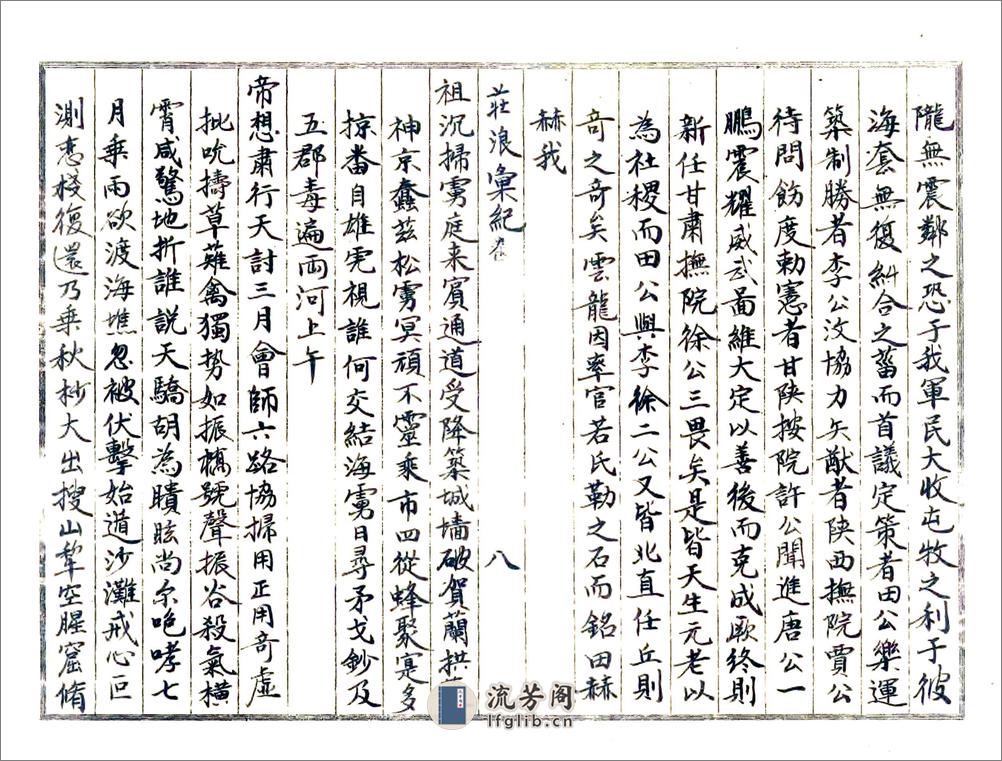 隴無震鄰之恐于我軍民大收屯牧之利于彼
海套無復糾合之蓄而首議定策者田公樂運
築制勝者李公汶協力矢猷者陝西撫院賈公
待問飭度勅憲者甘陝按院許公聞進唐公一
鵬震耀威武啚維大定以善後而克成厥終則
新任甘肅撫院徐公三畏矣是皆天生元老以
為社稷而田公與李徐二公又皆北直任丘則
奇之奇矣雲龍因率官若氏勒之石而銘曰赫
赫我
莊浪彙紀 八
祖沉掃雾庭来賓通道受降築城墙破賀蘭拱
神京蠢茲松雾冥頑不靈乘市四從蜂聚寔多
掠番自雄虎視誰何交結海雾日尋矛戈鈔及
五郡毒遍兩河上午
帝想肅行天討三月會師六路協掃用正用奇虛
批吭擣草薙禽獨势如振槁號聲振谷殺氣橫
霄咸驚地折誰説天驕胡為瞶眩尚尓咆哮七
月乘雨欲渡海樵忽被伏擊始遁沙灘戒心叵
測悲棧復還乃乗秋杪大出搜山犂空腥窟脩
流芳阁
lfglib.cn